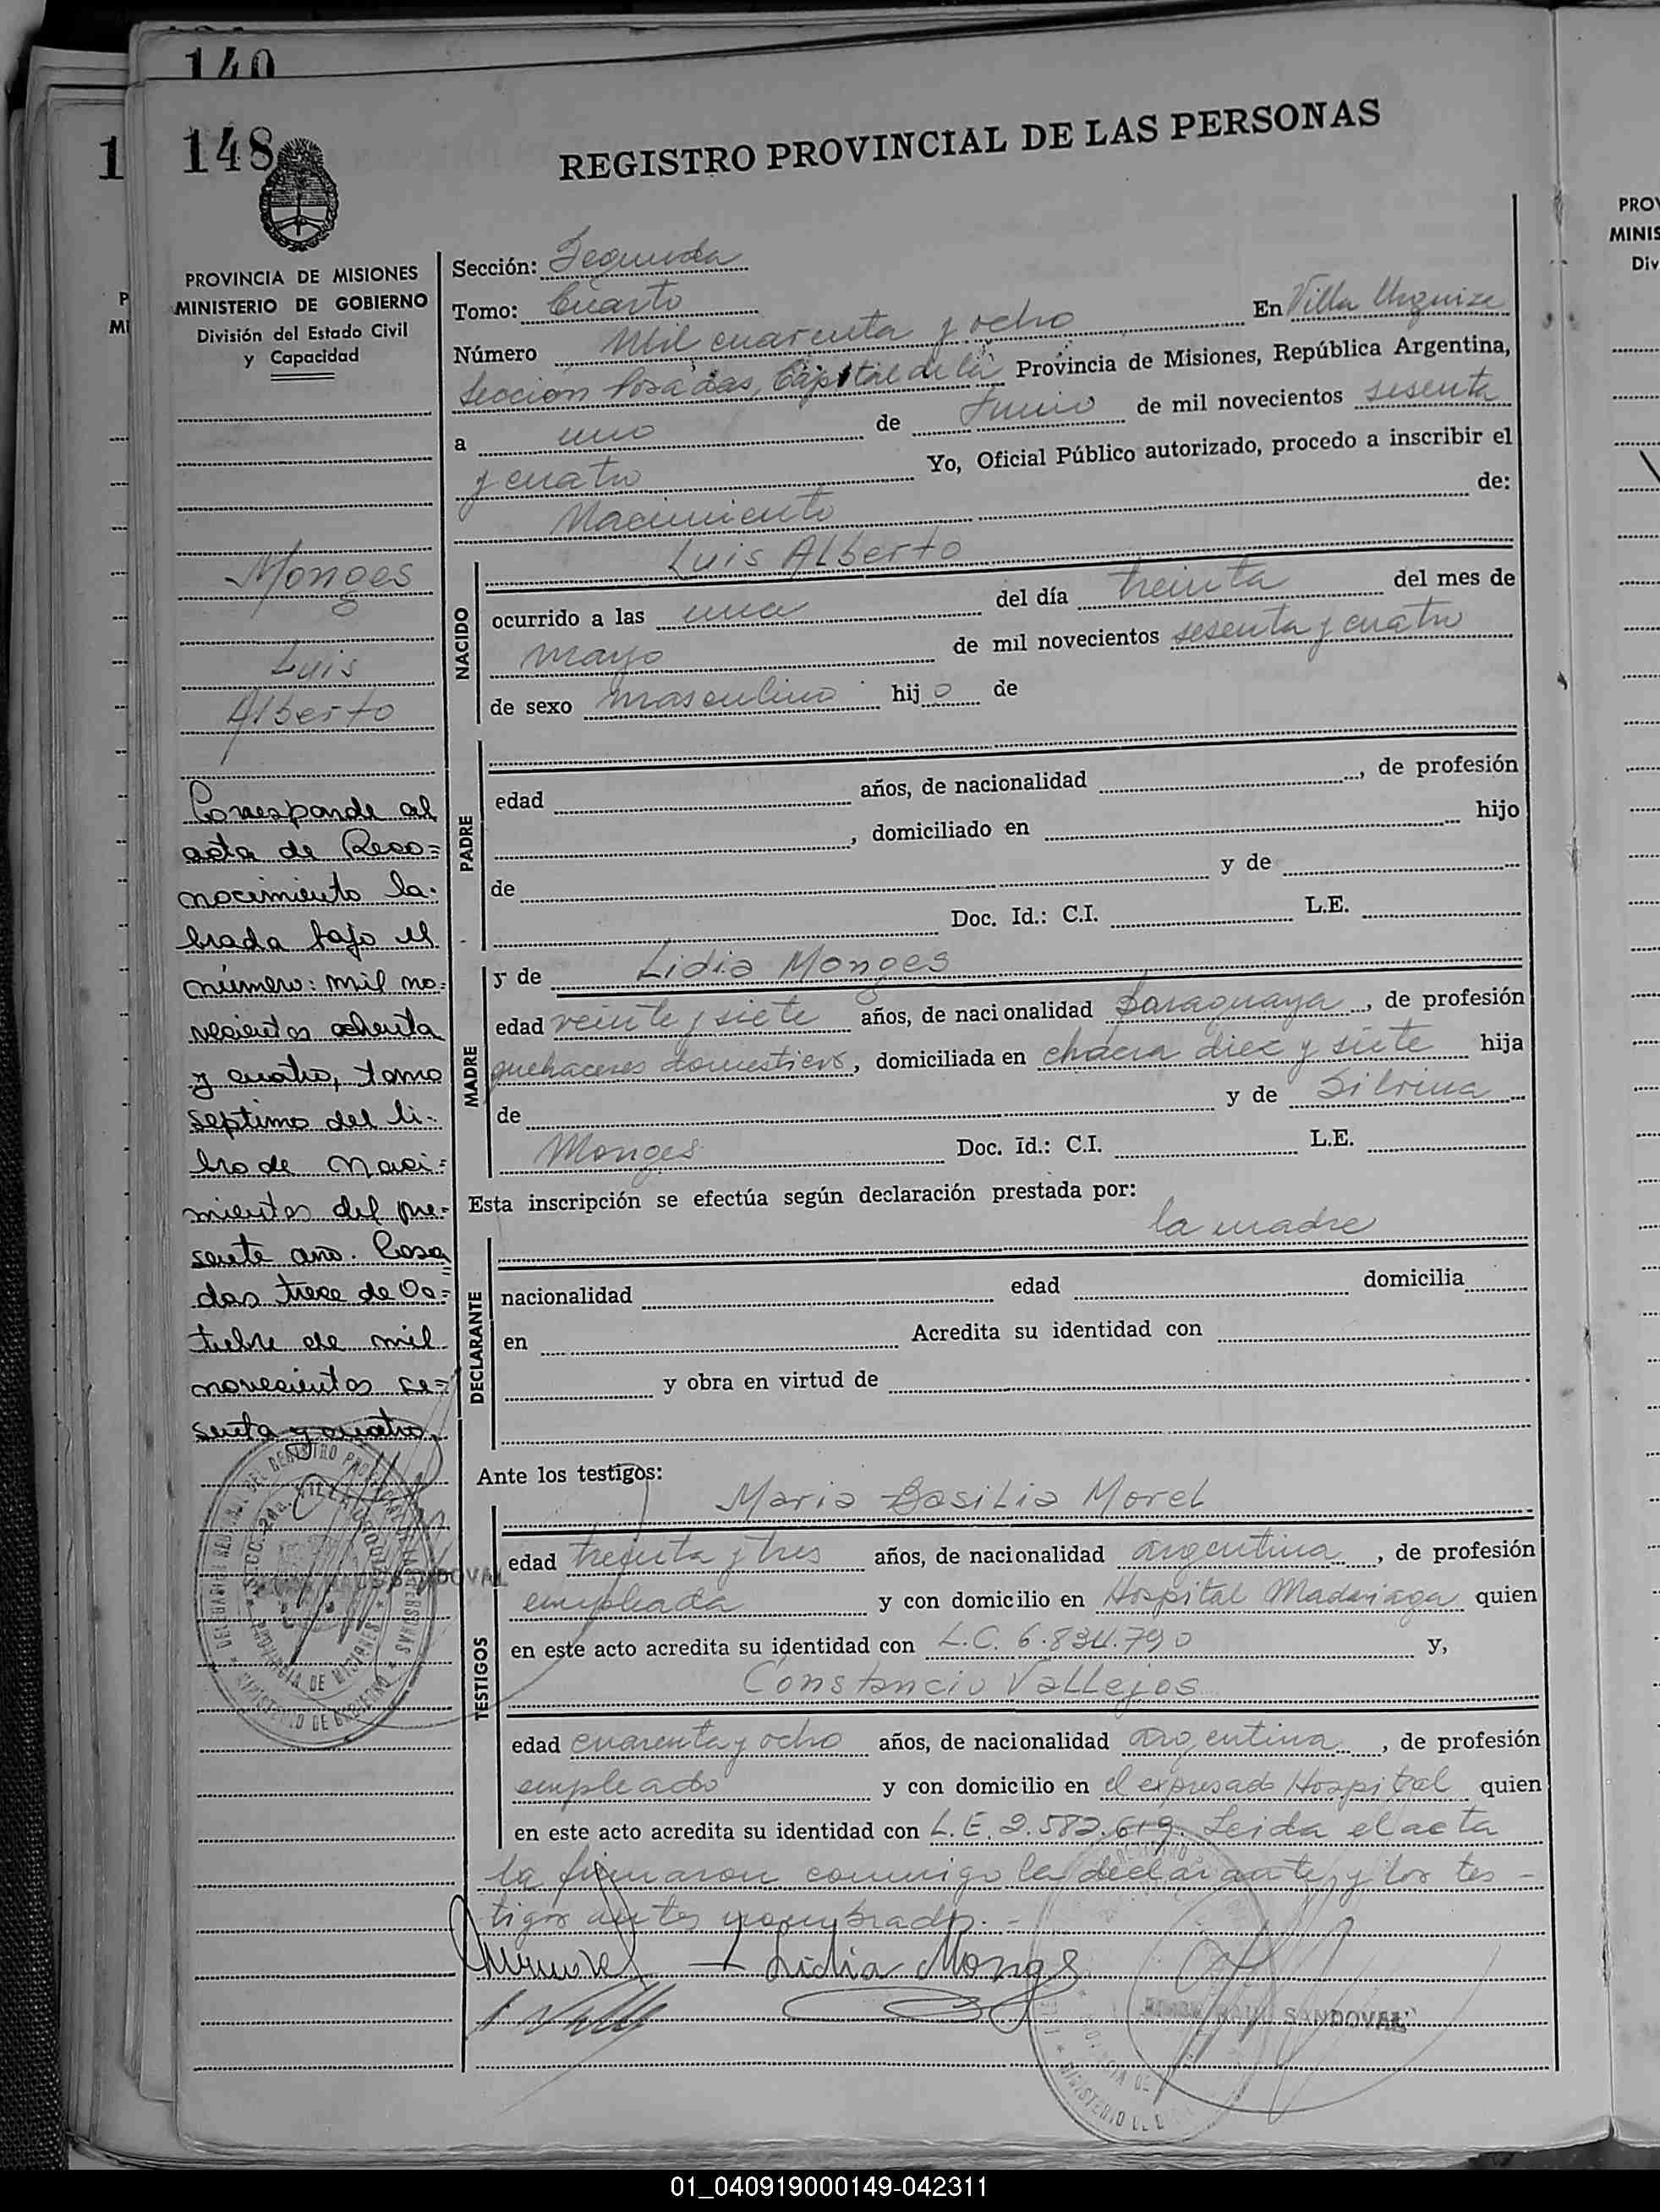 140
148
1
REGISTRO PROVINCIAL DE LAS PERSONAS
PROVINCIA DE MISIONES
MINISTERIO DE GOBIERNO
División del Estado Civil
y Capacidad
Monges
Luis
Alberto
Corresponde al
acta de Reco=
nocimiento la-
brada bajo el
número: mil no=
vecientos ochenta
y cuatro, tomo
septimo del li-
bro de Naci=
mientos del pre=
sente año. Posa
das trece de Oc=
tubre de mil
novecientos se=
senta y cuatro.
Sección: Segunda
Tomo: Cuarto
Número Mil cuarenta y ocho En Villa Urquiza
Sección Posadas, Capital de la Provincia de Misiones, República Argentina,
a uno de Junio de mil novecientos sesenta
y cuatro Yo, Oficial Público autorizado, procedo a inscribir el
Nacimiento de:
NACIDO
Luis Alberto
ocurrido a las una del día treinta del mes de
mayo de mil novecientos sesenta y cuatro
de sexo masculino hijo de
PADRE
edad años, de nacionalidad , de profesión
, domiciliado en hijo
de y de
Doc. Id.: C.I. L.E.
MADRE
y de Lidia Monges
edad veinte y siete años, de nacionalidad paraguaya, de profesión
quehaceres domesticos, domiciliada en chacra diez y siete hija
de y de Silvina
Monges Doc. Id.: C.I. L.E.
Esta inscripción se efectúa según declaración prestada por:
la madre
DECLARANTE
nacionalidad edad domicilia
en Acredita su identidad con
y obra en virtud de
Ante los testigos:
TESTIGOS
Maria Basilia Morel
edad treinta y tres años, de nacionalidad argentina, de profesión
empleada y con domicilio en Hospital Madariaga quien
en este acto acredita su identidad con L.C. 6.834.790 y,
Constancio Vallejos
edad cuarenta y ocho años, de nacionalidad argentina, de profesión
empleado y con domicilio en el expresado Hospital quien
en este acto acredita su identidad con L.E. 2.582.619. Leida el acta
la firmaron conmigo la declarante, y los tes-
tigos antes nombrados.-
Lidia Monges
SANDOVAL
PROV
MINIS
Div
01_040919000149-042311